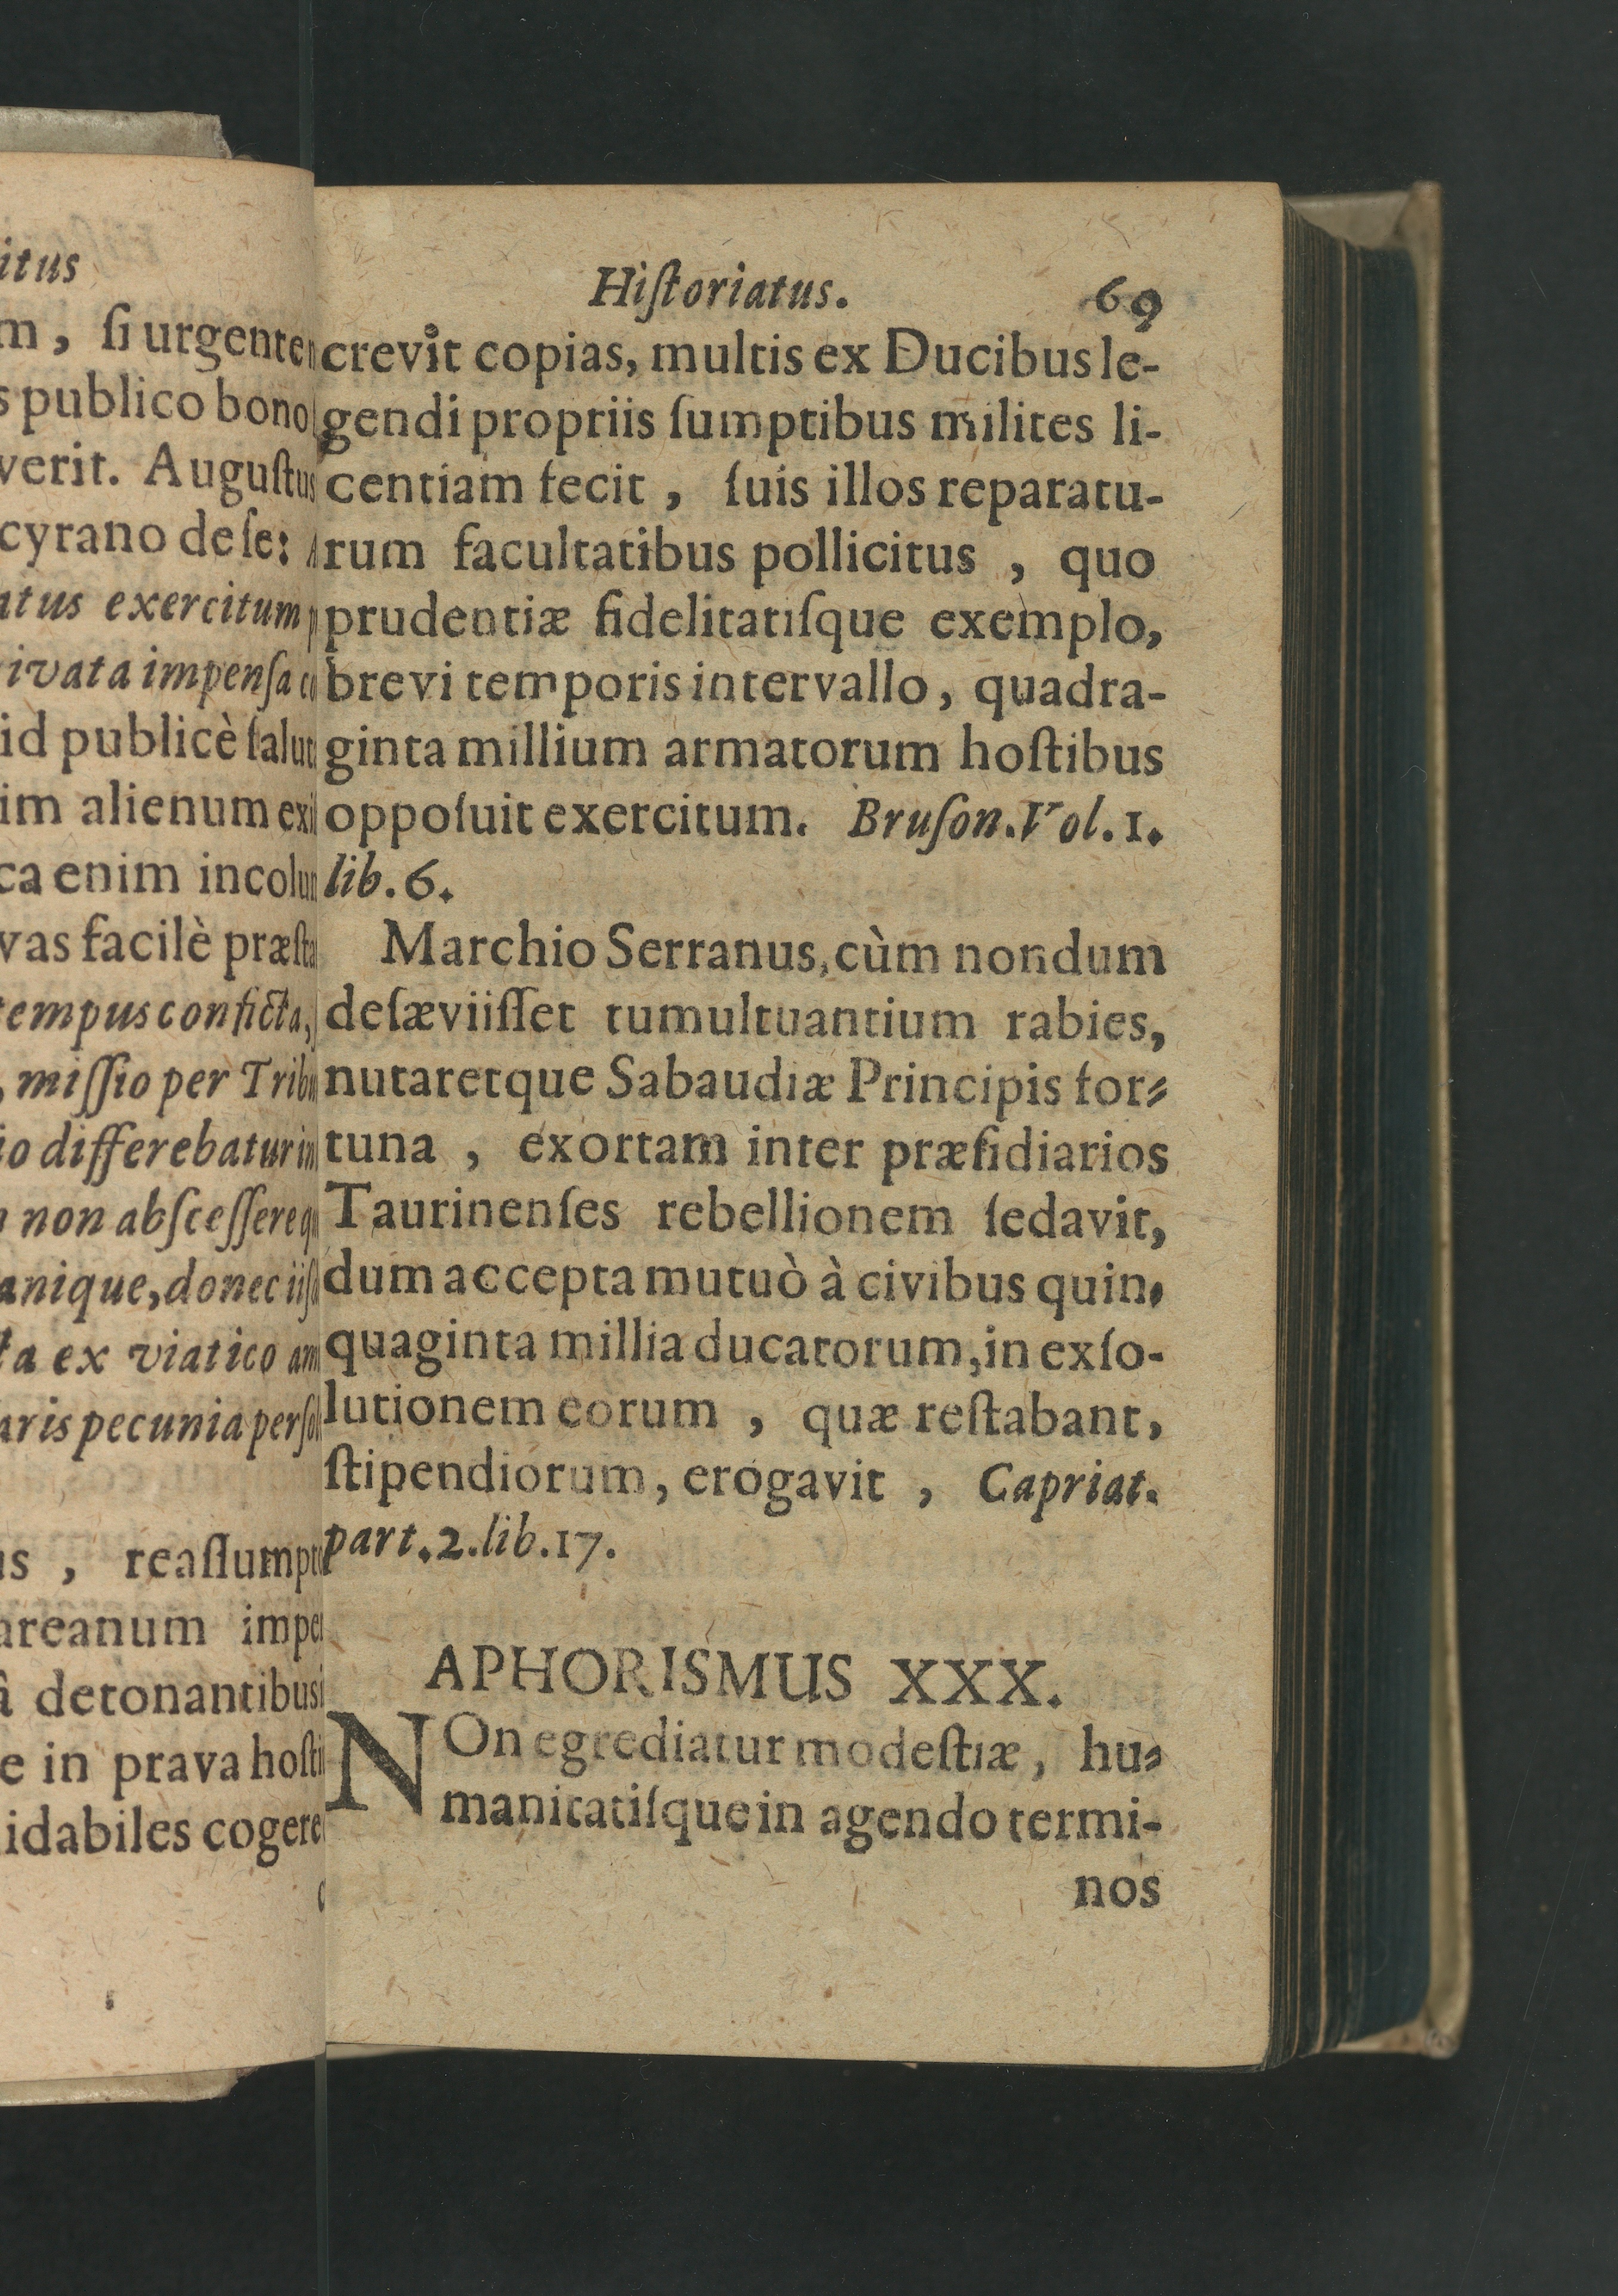 itus
m, ſi urgente
s publico bono
verit. Auguſtus
cyrano de ſe:
atus exercitum
ivata impenſa
id publicè ſalut
im alienum exi
ca enim incolu
vas facilè præſta
tempus conficta,
, miſſio per Tribu
io differebatur in
n non abſceſſere
anique, donec iiſ
ta ex viatico
aris pecunia perſo
us, reaſſumpt
areanum impe
â detonantibus
e in prava hoſti
idabiles cogere
Hiſtoriatus. 69
crevit copias, multis ex Ducibus le-
gendi propriis ſumptibus milites li-
centiam fecit, ſuis illos reparatu-
rum facultatibus pollicitus, quo
prudentiæ fidelitatiſque exemplo,
brevi temporis intervallo, quadra-
ginta millium armatorum hoſtibus
oppoſuit exercitum. Bruſon. Vol. 1.
lib. 6.
Marchio Serranus, cùm nondum
deſæviiſſet tumultuantium rabies,
nutaretque Sabaudiæ Principis for-
tuna, exortam inter præſidiarios
Taurinenſes rebellionem ſedavit,
dum accepta mutuò à civibus quin,
quaginta millia ducatorum, in exſo-
lutionem eorum, quæ reſtabant,
ſtipendiorum, erogavit, Capriat.
part. 2. lib. 17.
APHORISMUS XXX.
NOn egrediatur modeſtiæ, hu-
manitatiſque in agendo termi-
nos